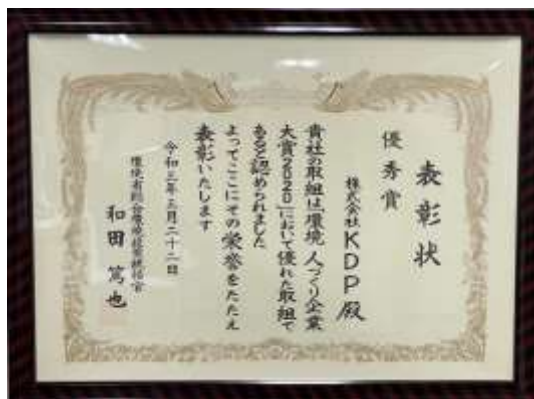 表彰状
優秀賞
株式会社KDP殿
貴社の取組は「環境 人づくり企業
大賞2020」において優れた取組で
あると認められました
よってここにその栄誉をたたえ
表彰いたします
令和三年三月二十二日
環境省総合環境政策統括官
和田 篤也